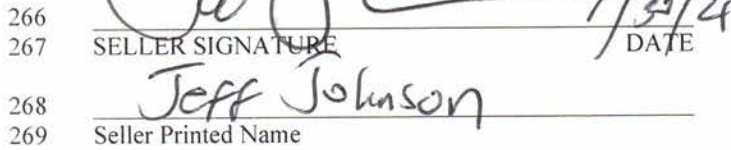 266
267 SELLER SIGNATURE DATE
268 Jeff Johnson
269 Seller Printed Name